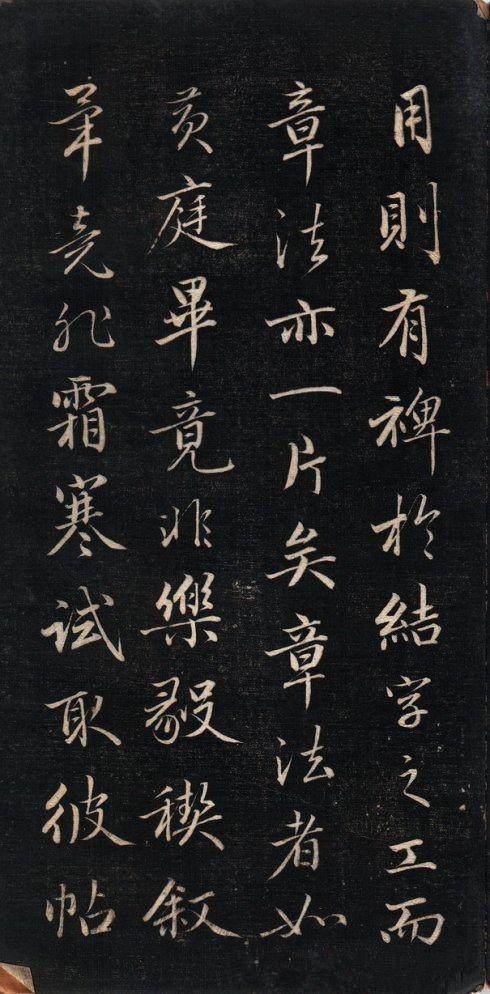 用則有裨於結字之工而
章法亦一片矣章法者如
黄庭畢竟非樂毅稧叙
畢竟非霜寒試取彼帖